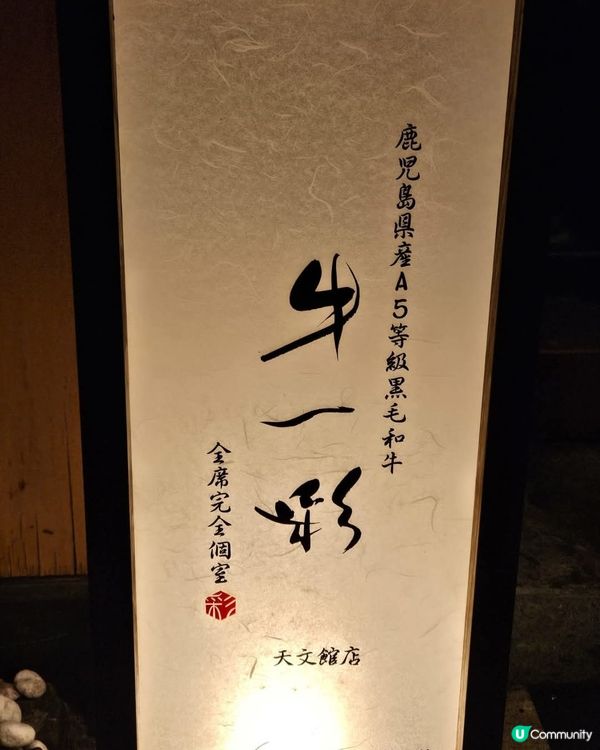 鹿児島県産A5等級黒毛和牛
牛一彩
全席完全個室
彩
天文館店
U Community